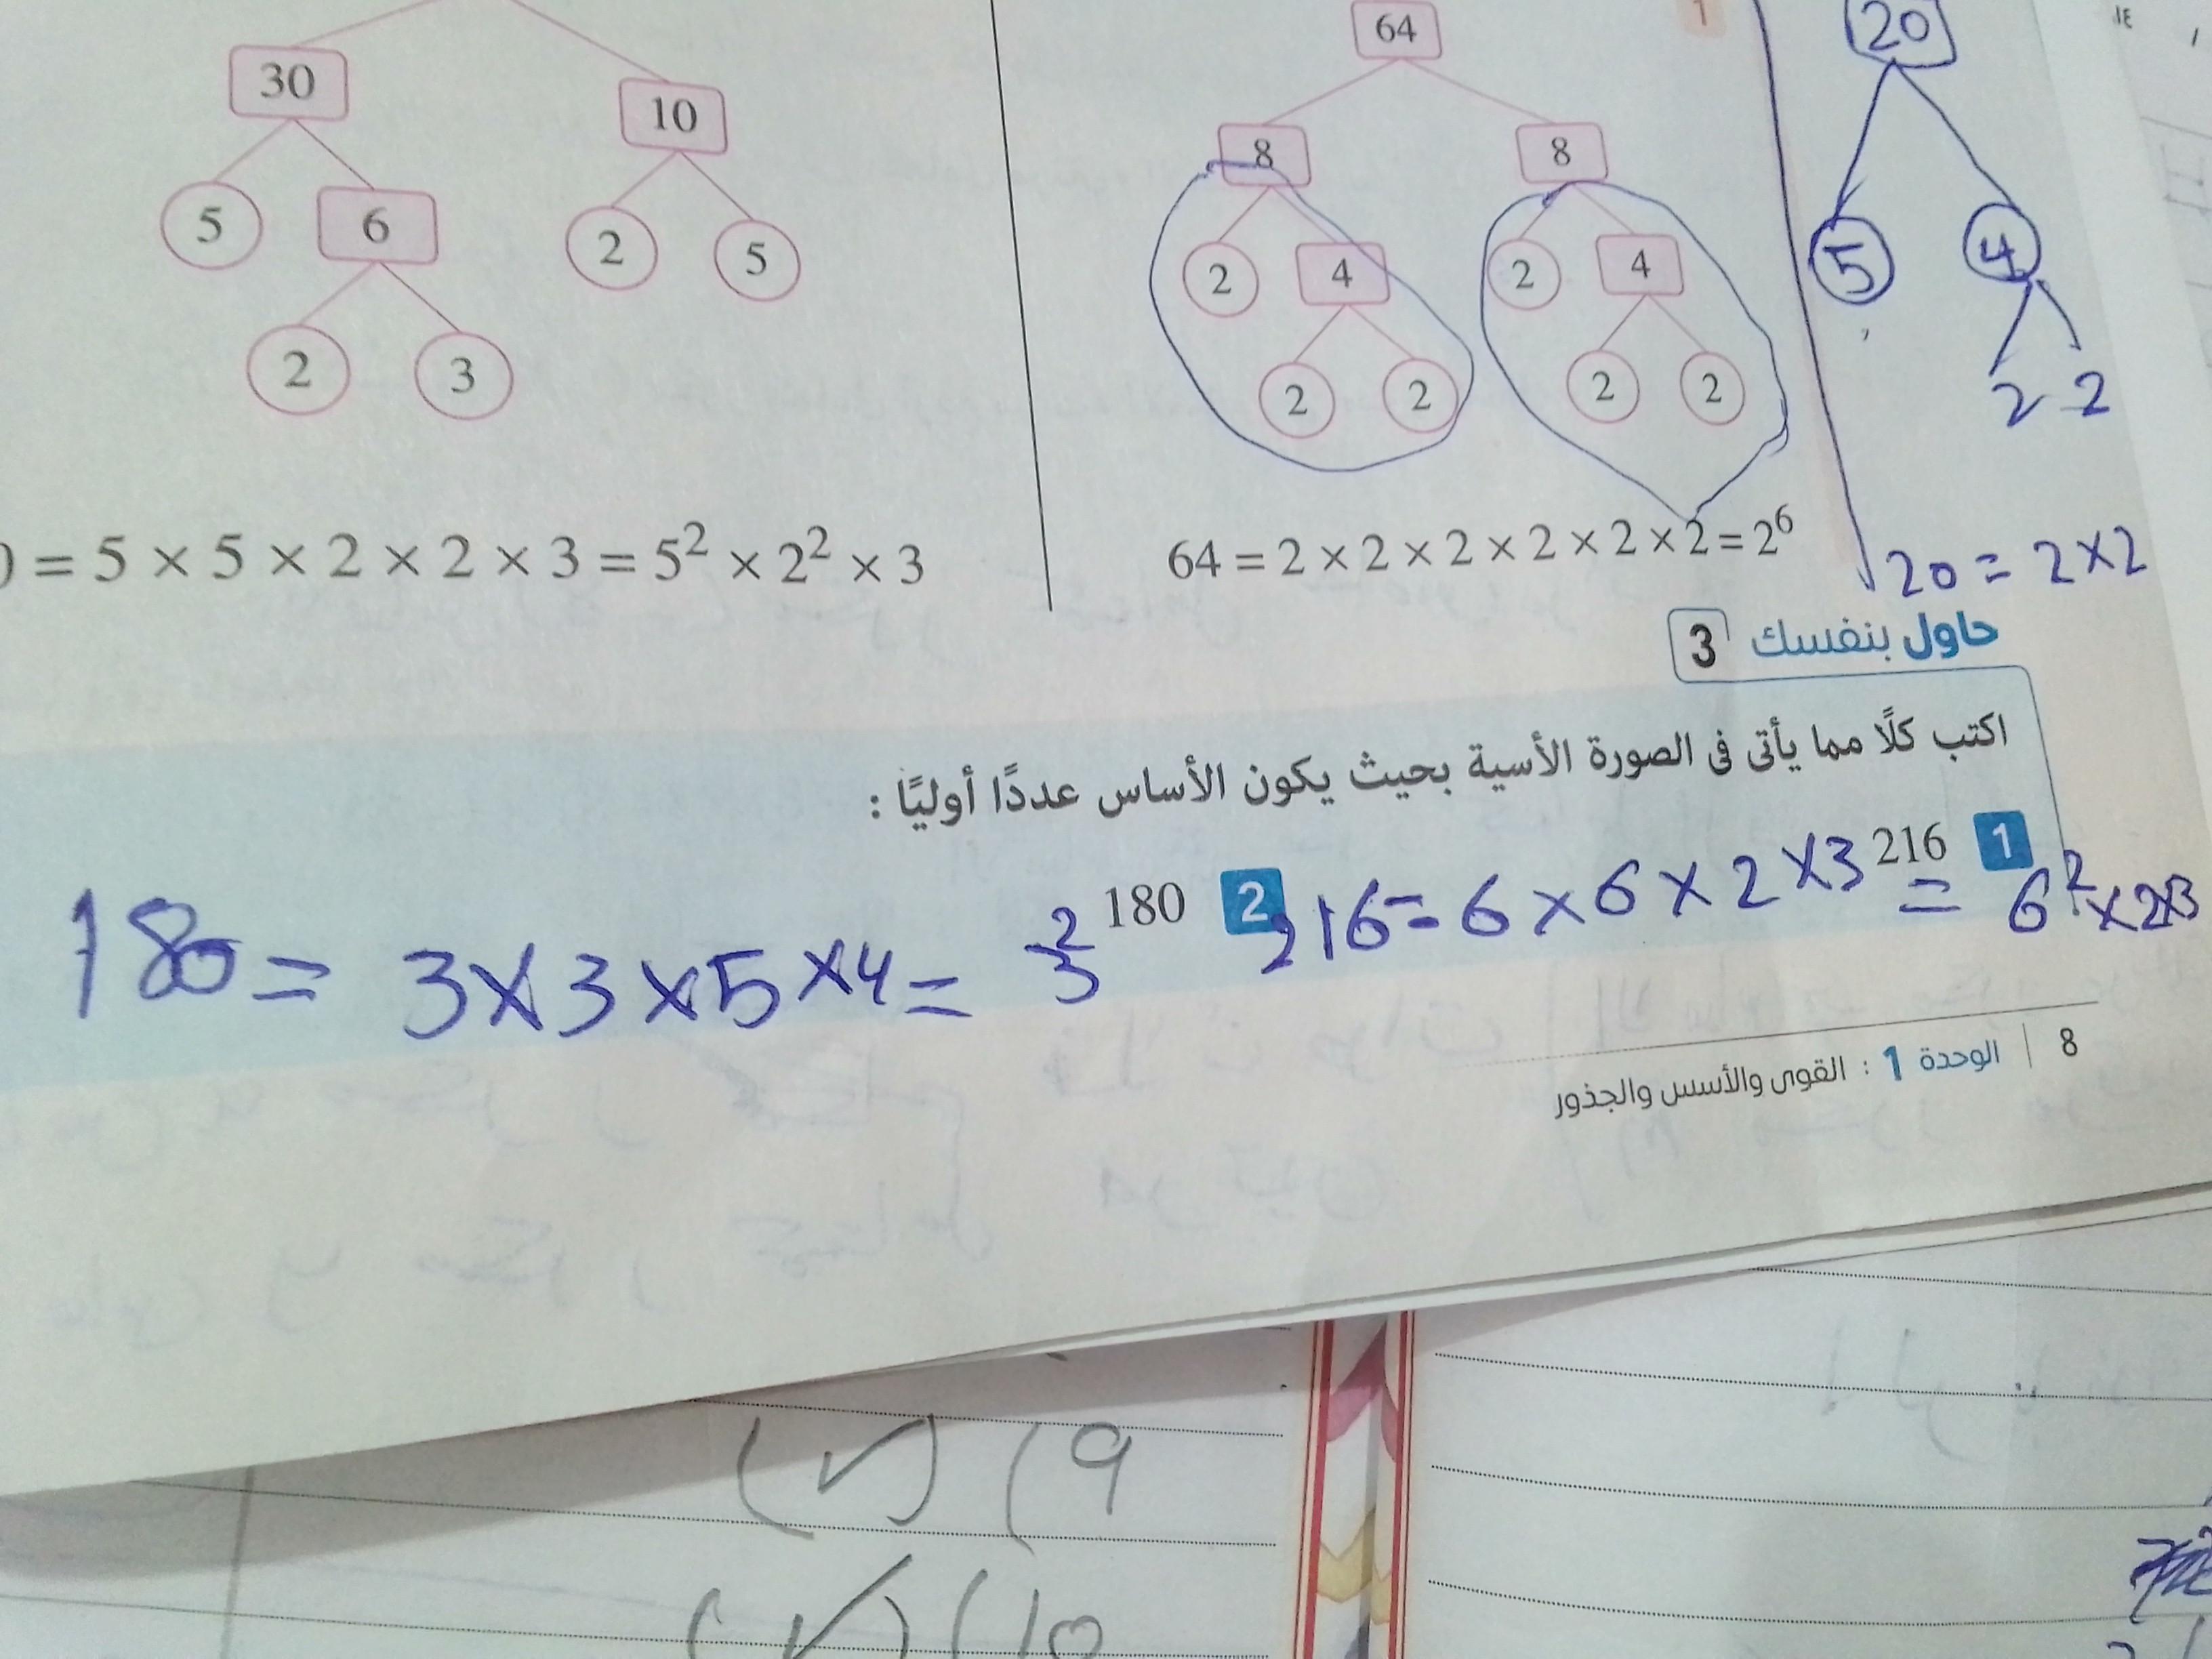 64
20
30
10
8
8
5
6
2
5
2
4
2
4
5
4
2
3
2
2
2
2
2 2
0 = 5 × 5 × 2 × 2 × 3 = 5² × 2² × 3
64 = 2 × 2 × 2 × 2 × 2 × 2 = 2⁶
20 = 2×2
حاول بنفسك 3
اكتب كلًا مما يأتى فى الصورة الأسية بحيث يكون الأساس عددًا أوليًا :
1 216
216 = 6 × 6 × 2 × 3 = 6² × 2×3
2 180
180 = 3 × 3 × 5 × 4 = 3²
8 | الوحدة 1 : القوى والأسس والجذور
9) (✓)
10) (✓)